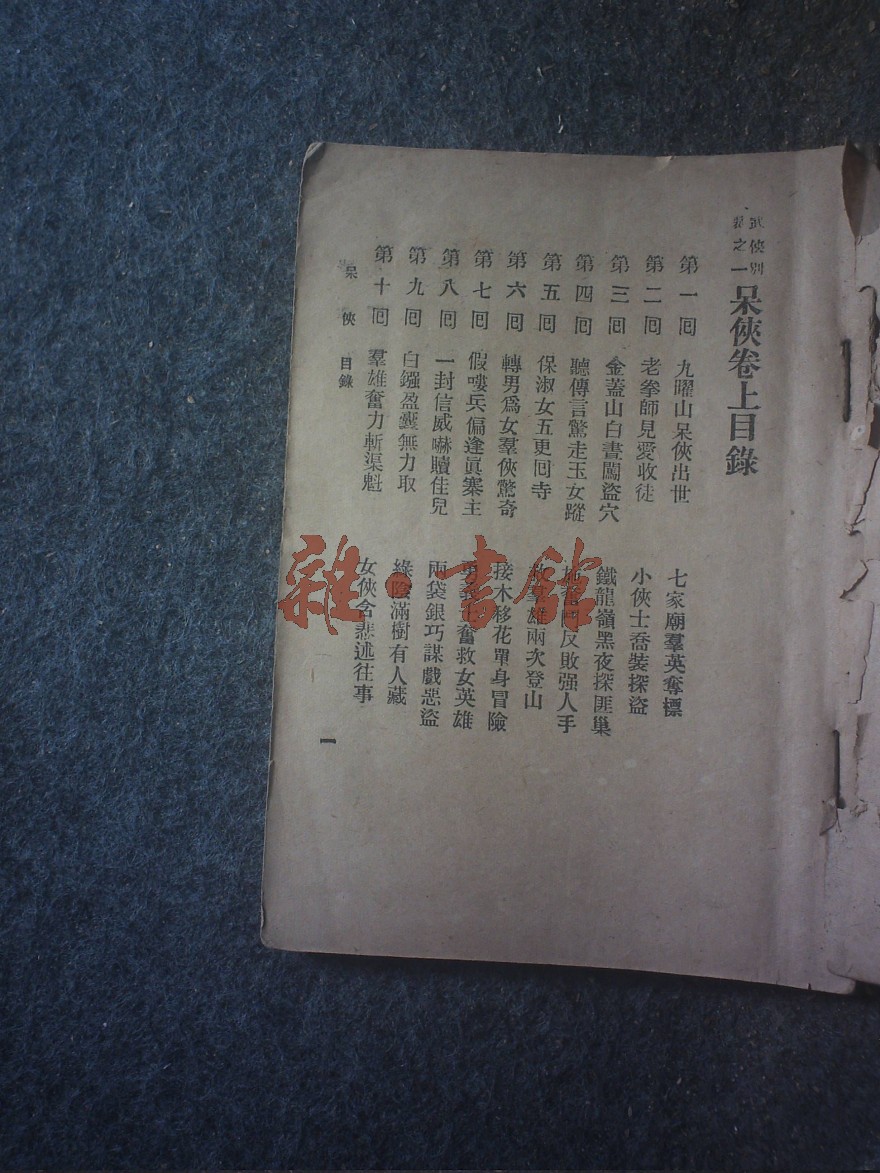 武俠別
之一
呆俠卷上目錄
第一回 九曜山呆俠出世 七家廟羣英奪標
第二回 老拳師見愛收徒 小俠士喬裝探盜
第三回 金蓋山白晝闖盜穴 鐵龍嶺黑夜探匪巢
第四回 聽傳言驚走玉女蹤 反敗强人手
第五回 保淑女五更回寺 羣雄兩次登山
第六回 轉男爲女羣俠驚奇 接木移花單身冒險
第七回 假嘍兵偏逢眞寨主 奮救女英雄
第八回 一封信威嚇贖佳兒 兩袋銀巧謀戲惡盜
第九回 白鏹盈囊無力取 綠陰滿樹有人藏
第十回 羣雄奮力斬渠魁 女俠含悲述往事
呆俠 目錄
一
雜·書館